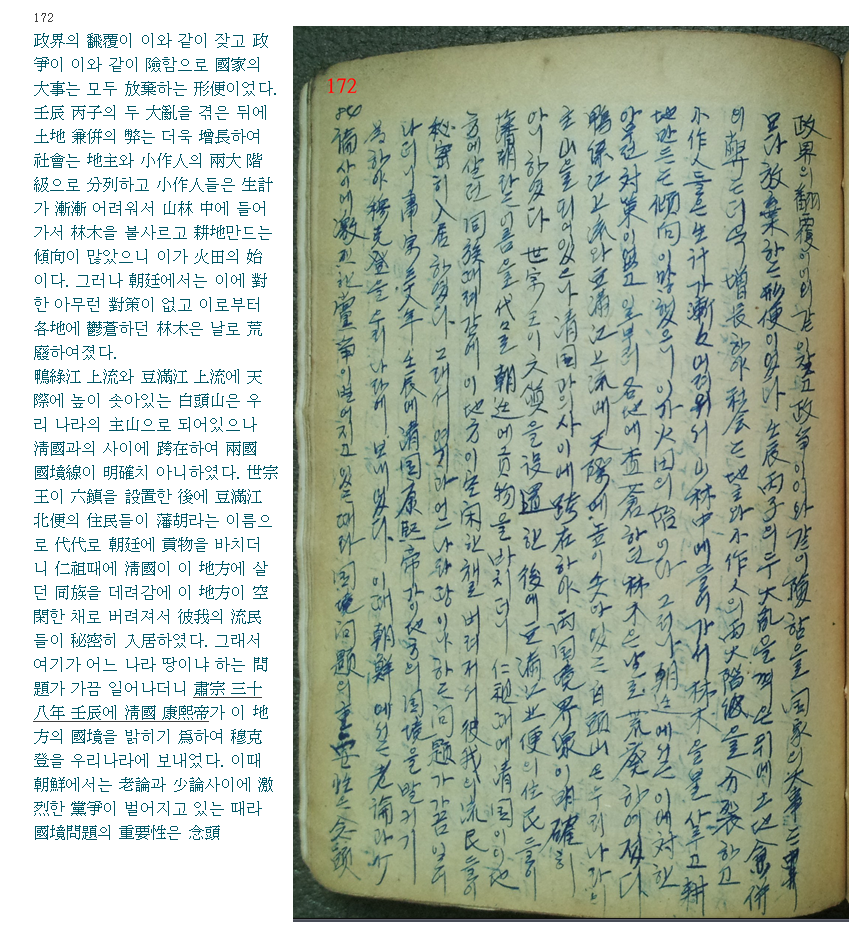 172
政界의 飜覆이 이와 같이 잦고 政
爭이 이와 같이 險함으로 國家의
大事는 모두 放棄하는 形便이었다.
壬辰 丙子의 두 大亂을 겪은 뒤에
土地 兼倂의 弊는 더욱 增長하여
社會는 地主와 小作人의 兩大 階
級으로 分列하고 小作人들은 生計
가 漸漸 어려워서 山林 中에 들어
가서 林木을 불사르고 耕地만드는
傾向이 많았으니 이가 火田의 始
이다. 그러나 朝廷에서는 이에 對
한 아무런 對策이 없고 이로부터
各地에 鬱蒼하던 林木은 날로 荒
廢하여졌다.
鴨綠江 上流와 豆滿江 上流에 天
際에 높이 솟아있는 白頭山은 우
리 나라의 主山으로 되어있으나
淸國과의 사이에 跨在하여 兩國
國境線이 明確치 아니하였다. 世宗
王이 六鎭을 設置한 後에 豆滿江
北便의 住民들이 藩胡라는 이름으
로 代代로 朝廷에 貢物을 바치더
니 仁祖때에 淸國이 이 地方에 살
던 同族을 데려감에 이 地方이 空
閑한 채로 버려져서 彼我의 流民
들이 秘密히 入居하였다. 그래서
여기가 어느 나라 땅이냐 하는 問
題가 가끔 일어나더니 肅宗 三十
八年 壬辰에 淸國 康熙帝가 이 地
方의 國境을 밝히기 爲하여 穆克
登을 우리나라에 보내었다. 이때
朝鮮에서는 老論과 少論사이에 激
烈한 黨爭이 벌어지고 있는 때라
國境問題의 重要性은 念頭
172
政界의 飜覆이 이와 같이 잦고 政争이 이와 같이 險함으로 国家의 大事는
모다 放棄하는 形便이었다 壬辰 丙子의 두 大亂을 껵은 뒤에 土地 兼併
의 弊는 더욱 增長하야 社会는 地主와 小作人의 両大階級을 分裂하고
小作人들은 生計가 漸々 어려워서 山林中에 들어가서 林木을 불사루고 耕
地만드는 傾向이 많었으니 이가 火田의 始이다 그러나 朝廷에서는 이에 対한
아모런 対策이 없고 일부터 各地에 欝蒼하던 林木은 날로 荒廃하여젔다
鴨綠江上流와 豆滿江上流에 天際에 높이 솟아있는 白頭山은 우리나라의
主山으로 되어있으나 清国과의 사이에 跨在하야 両国境界線이 明確치
아니하였다 世宗王이 六鎭을 設置한 後에 豆滿江北便의 住民들이
藩胡라는 이름을 代々로 朝廷에 貢物을 바치더니 仁祖때에 清国이 이 地
方에 살던 同族때려감에 이 地方이 空闲한 채로 버려저서 彼我의 流民들이
秘密히 入居하였다. 그래서 여기가 어느 나라 땅이냐 하는 问题가 가끔 일어
나더니 肅宗 三十八年 壬辰에 清国康熙帝가 이 地方의 国境을 밝키기
爲하야 穆克登을 우리나라에 보내었다. 이때 朝鮮에서는 老論과 少
論사이에 激烈한 黨争이 벌어지고 있는 때라 国境问题의 重要性은 念頭
84